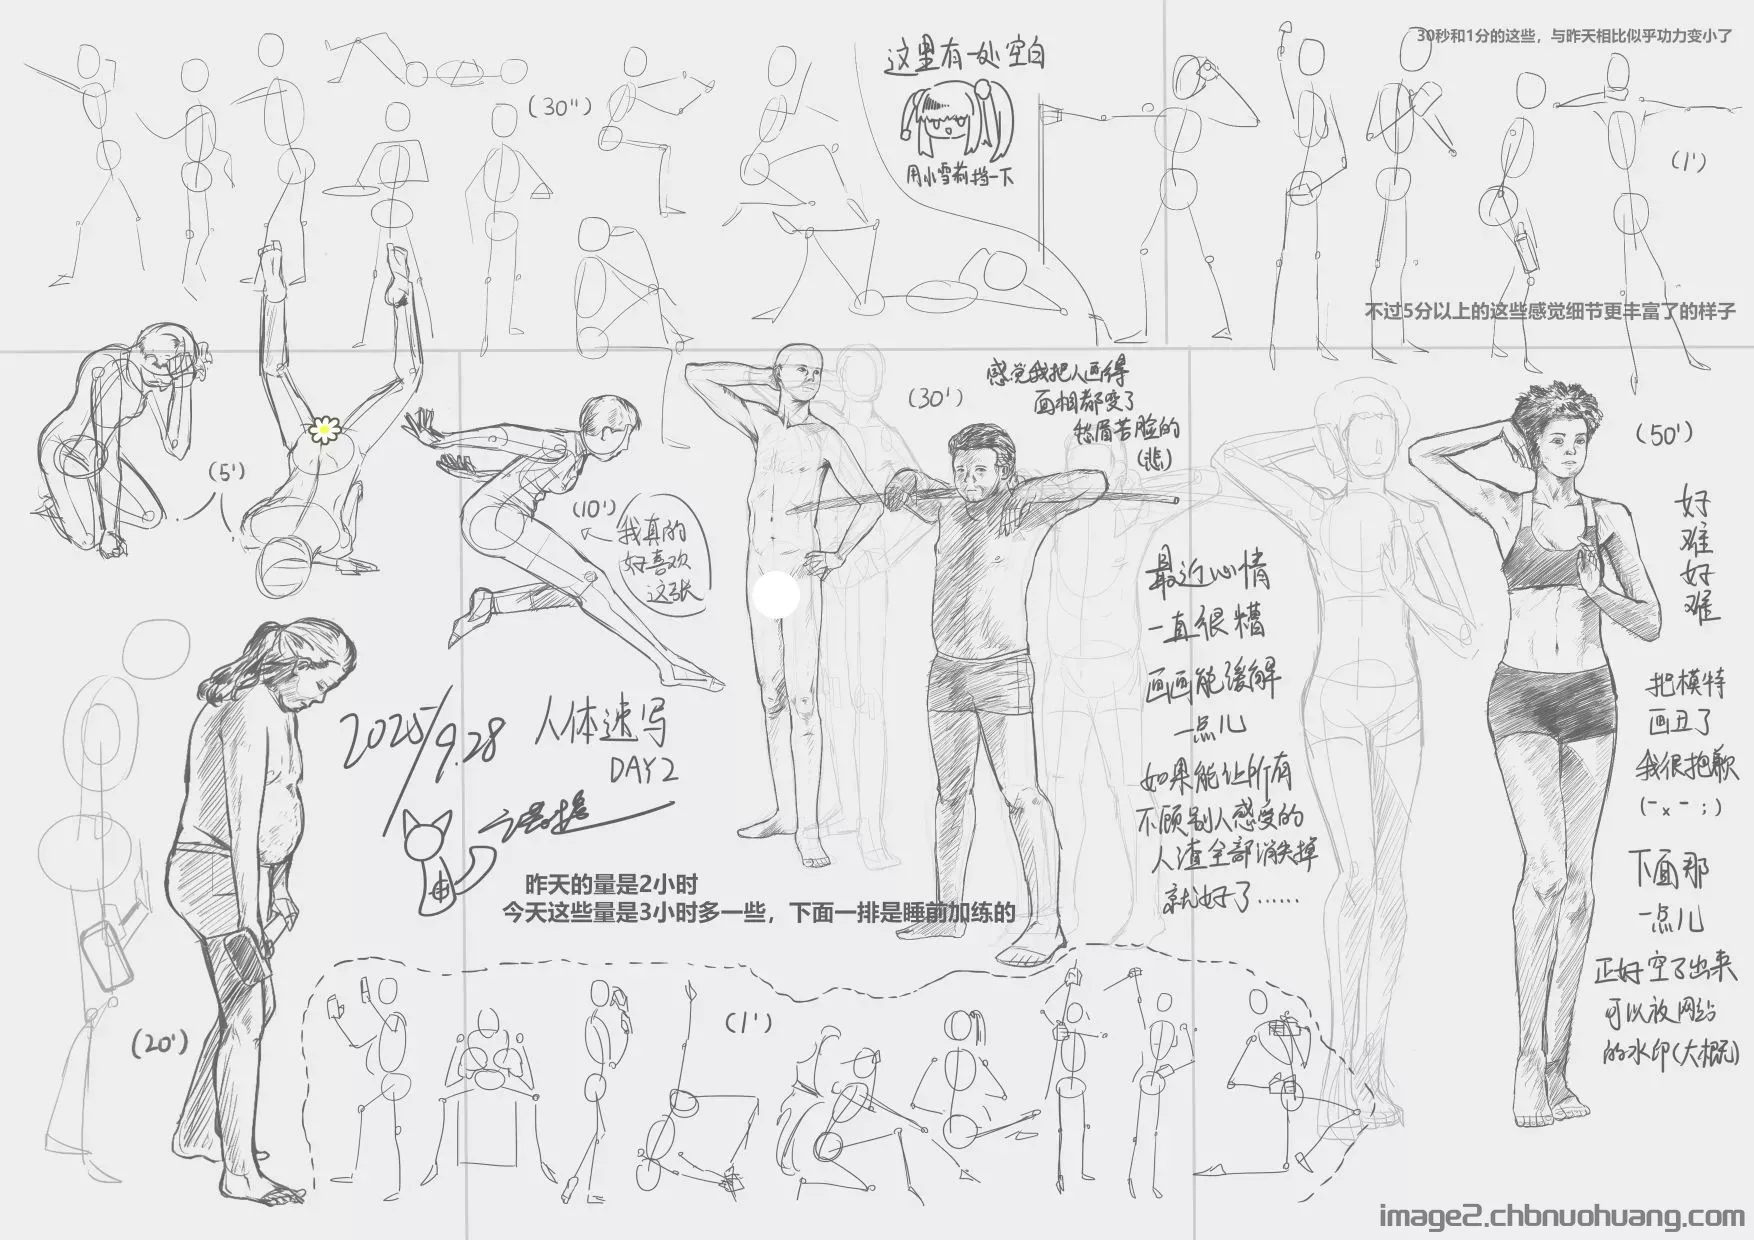 30秒和1分的这些，与昨天相比似乎功力变小了
这里有一处空白
用小雪莉挡一下
(30")
(1')
不过5分以上的这些感觉细节更丰富了的样子
(5')
(10')
我真的
好喜欢
这张
(30')
感觉我把人画得
面相都变了
愁眉苦脸的
(悲)
(50')
好
难
好
难
最近心情
一直很糟
画画能缓解
一点儿
如果能让所有
不顾别人感受的
人渣全部消失掉
就好了……
把模特
画丑了
我很抱歉
(-x-;)
下面那
一点儿
正好空了出来
可以放网站
的水印(大概)
2025/9.28
人体速写
DAY2
昨天的量是2小时
今天这些量是3小时多一些，下面一排是睡前加练的
(20')
(1')
image2.chbnuohuang.com